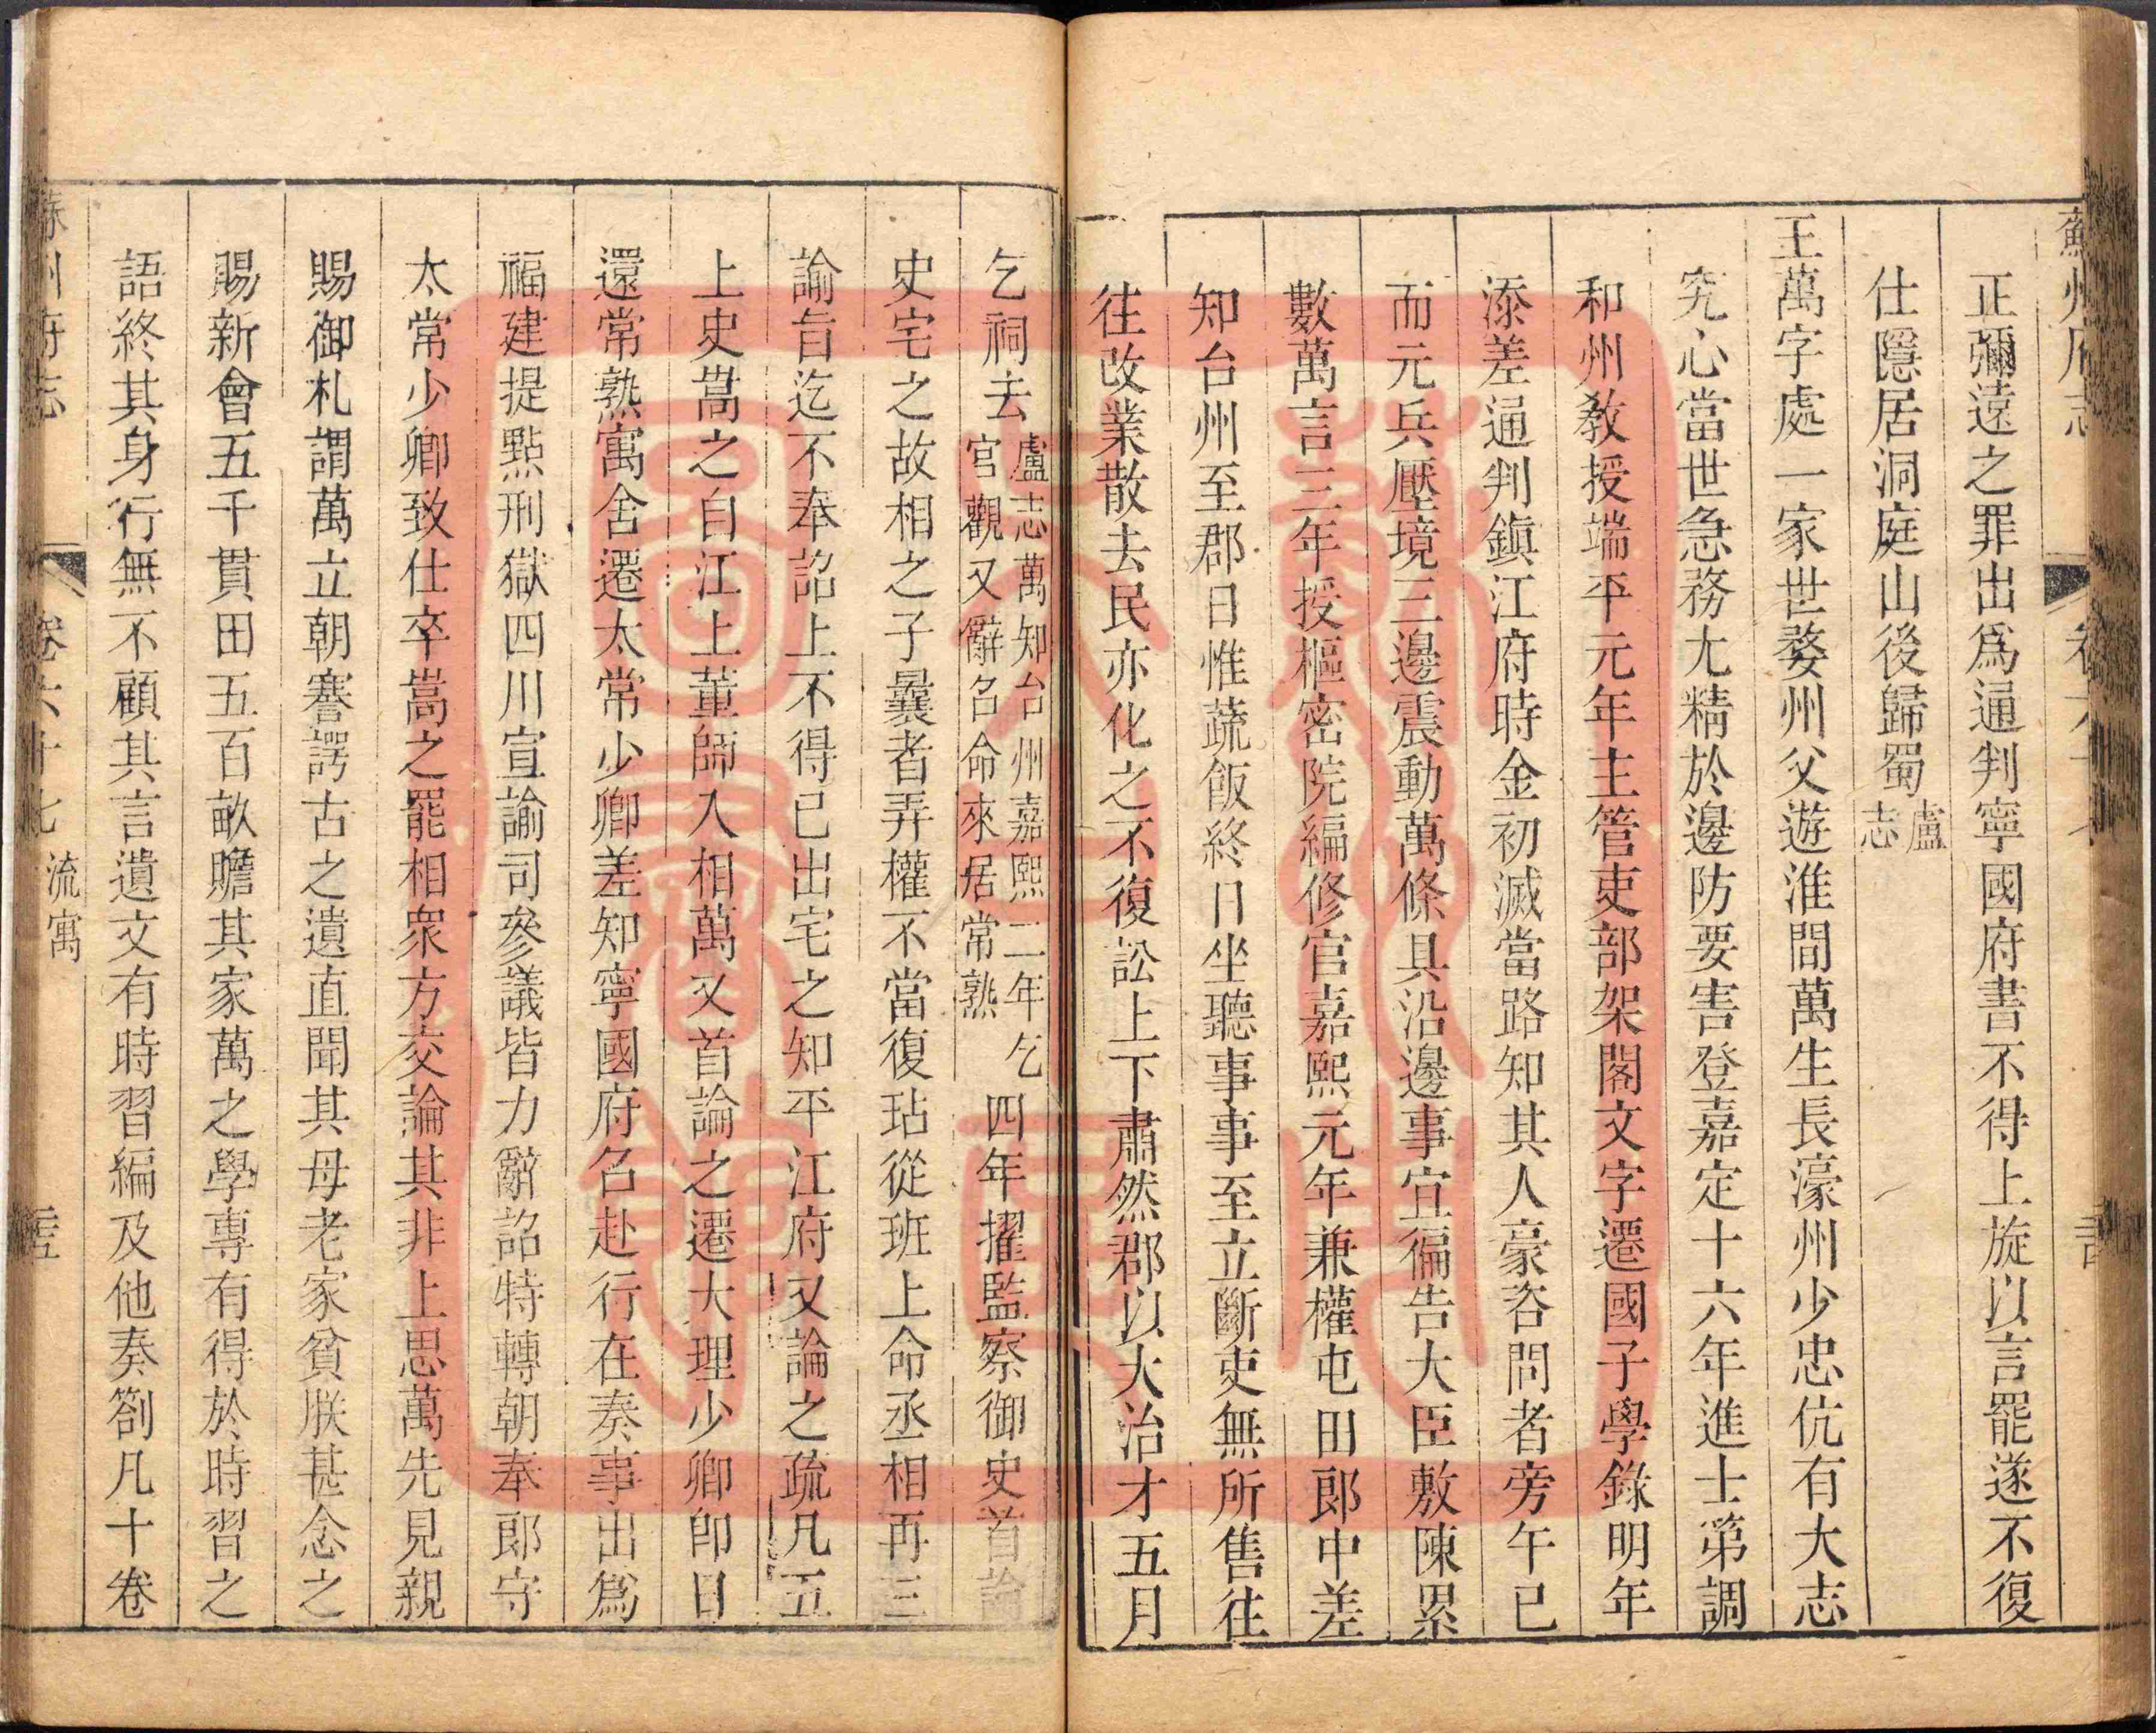 正彌遠之罪出爲通判寧國府書不得上旋以言罷遂不復
仕隱居洞庭山後歸蜀盧志
王萬字處一家世婺州父遊淮間萬生長濠州少忠伉有大志
究心當世急務尤精於邊防要害登嘉定十六年進士第調
和州教授端平元年主管吏部架閣文字遷國子學錄明年
添差通判鎮江府時金初滅當路知其人豪咨問者旁午已
而元兵壓境三邊震動萬條具沿邊事宜徧告大臣敷陳累
數萬言三年授樞密院編修官嘉熙元年兼權屯田郎中差
知台州至郡日惟蔬飯終日坐聽事事至立斷吏無所售往
往改業散去民亦化之不復訟上下肅然郡以大治才五月
乞祠去盧志萬知台州嘉熙二年乞宮觀又辭名命來居常熟四年擢監察御史首論
史宅之故相之子曩者弄權不當復玷從班上命丞相再三
諭旨迄不奉詔上不得已出宅之知平江府又論之疏凡五
上史嵩之自江上董師入相萬又首論之遷大理少卿卽日
還常熟寓舍遷太常少卿差知寧國府名赴行在奏事出爲
福建提點刑獄四川宣諭司參議皆力辭詔特轉朝奉郎守
太常少卿致仕卒嵩之罷相衆方交論其非上思萬先見親
賜御札謂萬立朝謇諤古之遺直聞其母老家貧朕甚念之
賜新會五千貫田五百畝贍其家萬之學專有得於時習之
語終其身行無不顧其言遺文有時習編及他奏劄凡十卷
蘇州府志 卷六十七 流寓